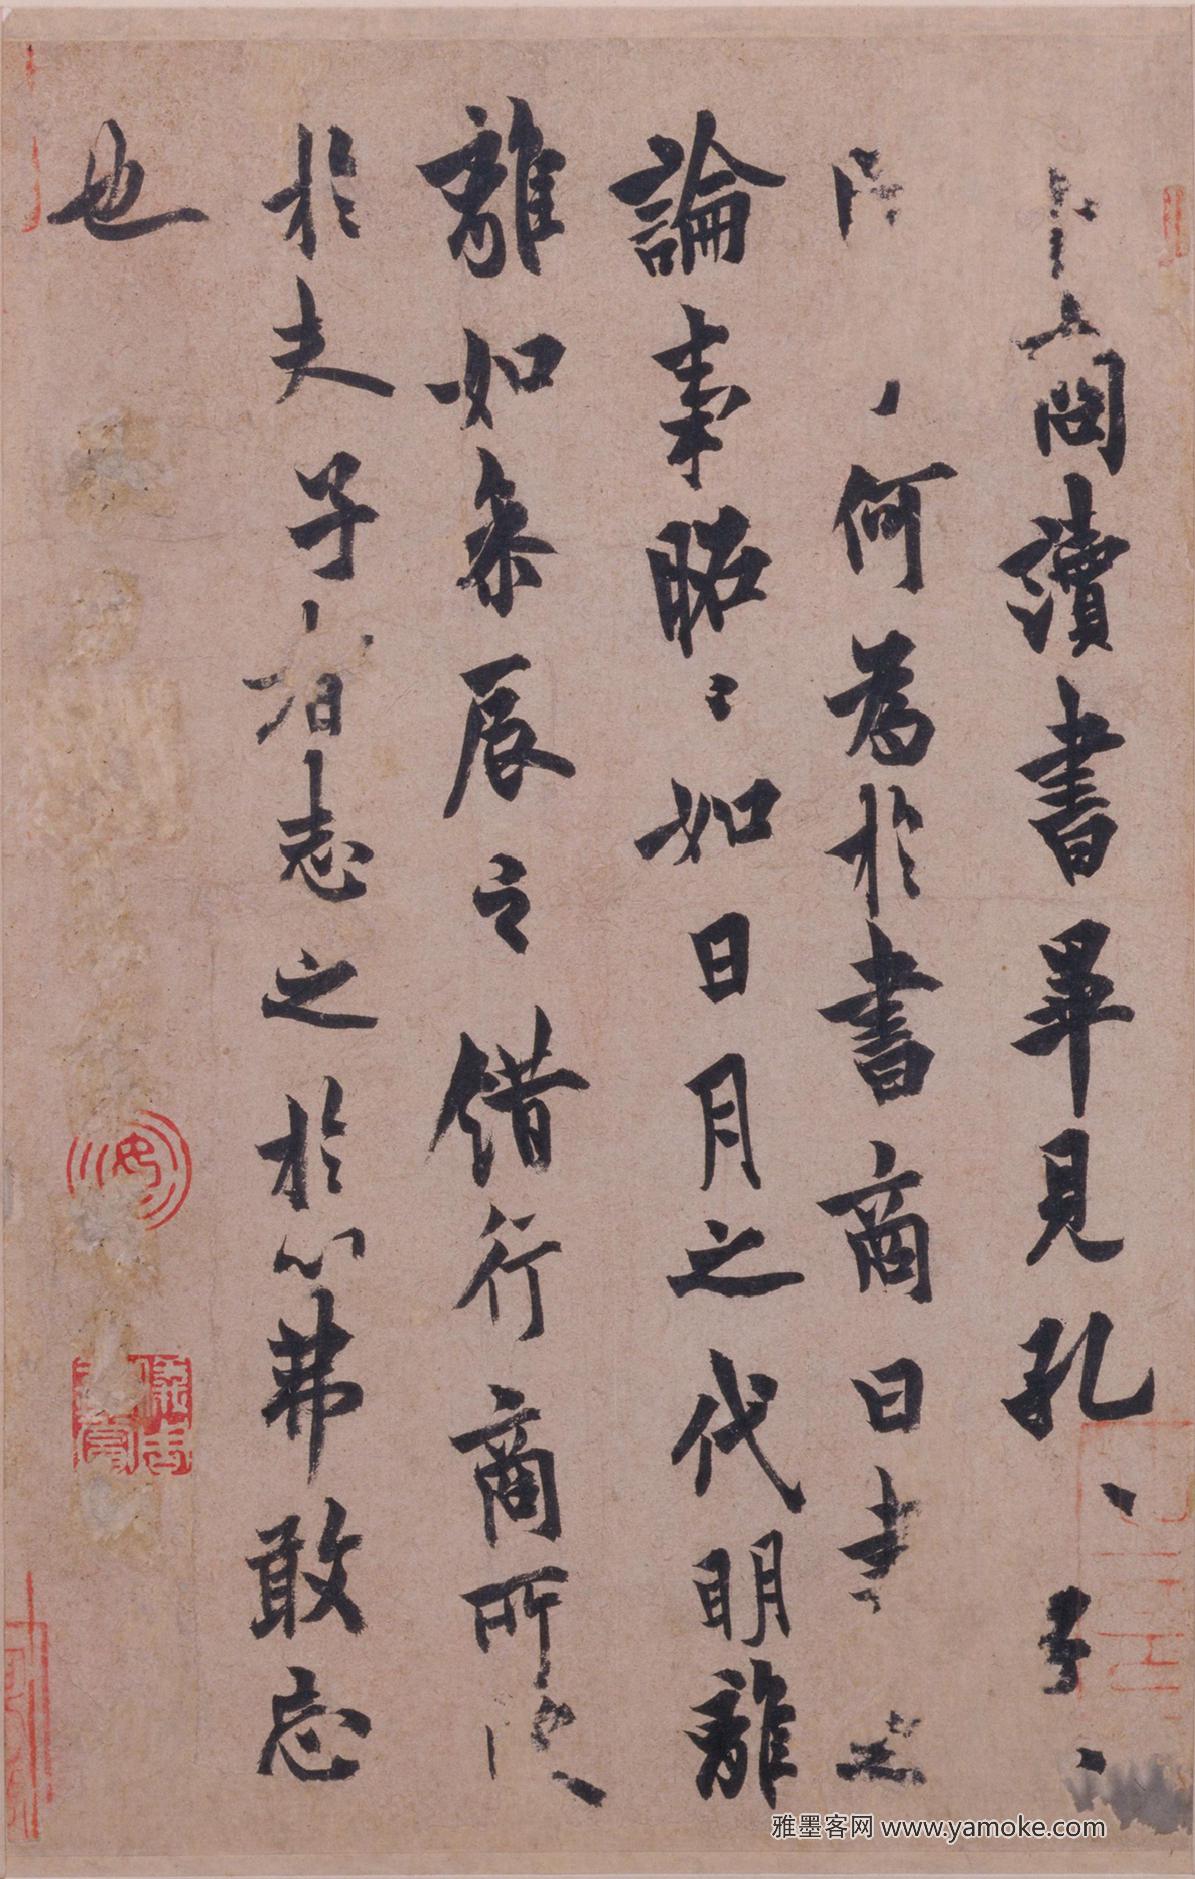 卜商讀書畢見孔〻子〻
何為於書商曰書之
論事昭〻如日月之代明離
離如參辰之錯行商所
於夫子者志之於心弗敢忘
也
雅墨客网 www.yamoke.com